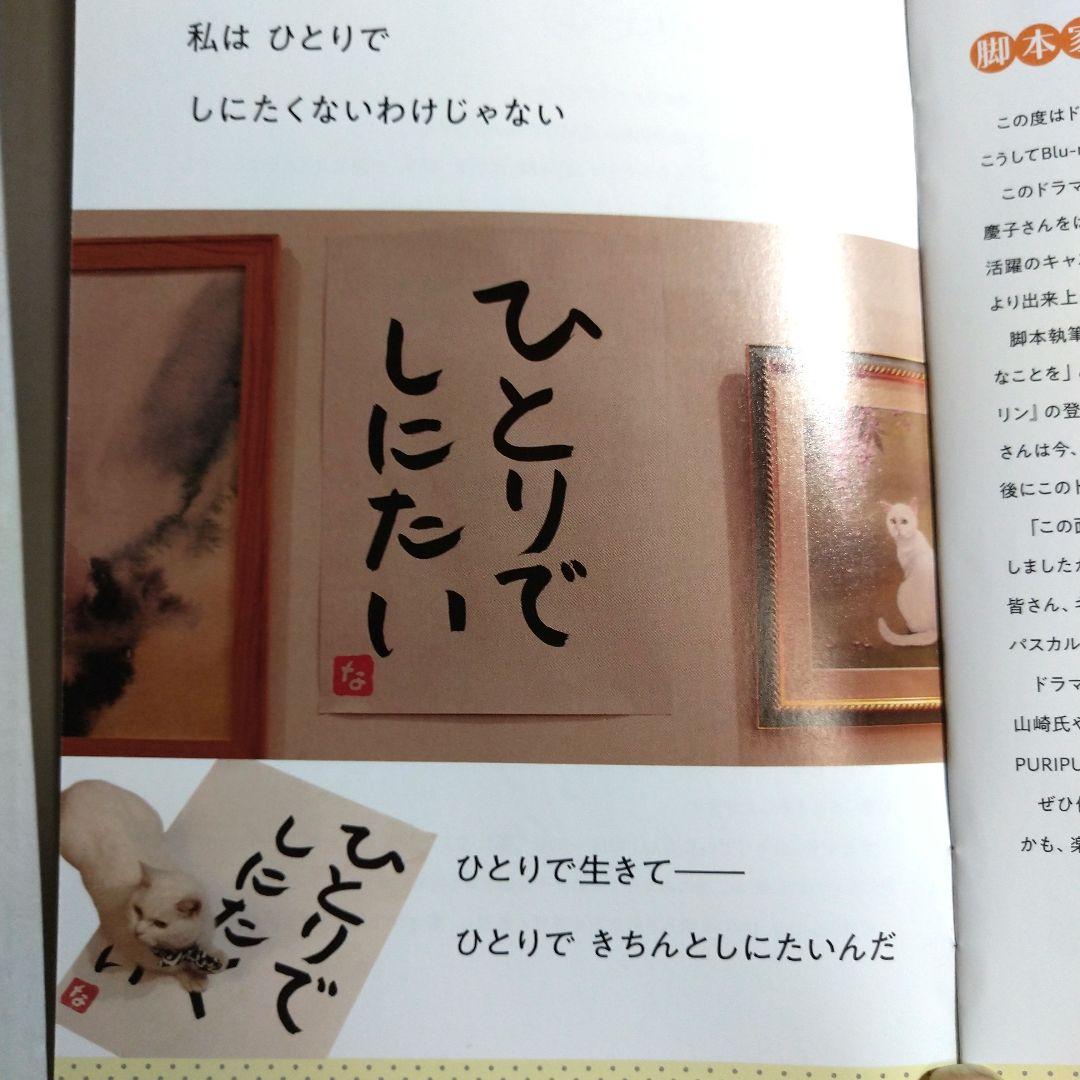 私は ひとりで
しにたくないわけじゃない
ひとりで
しにたい
な
ひとりで
しにたい
な
ひとりで生きて――
ひとりで きちんとしにたいんだ
脚本家
この度はド
こうしてBlu-r
このドラマ
慶子さんを
活躍のキャ
より出来上
脚本執筆
なことを」
リン』の登
さんは今、
後にこのド
『この
しました
皆さん、
パスカル
ドラマ
山崎氏や
PURIPU
ぜひ
かも、楽